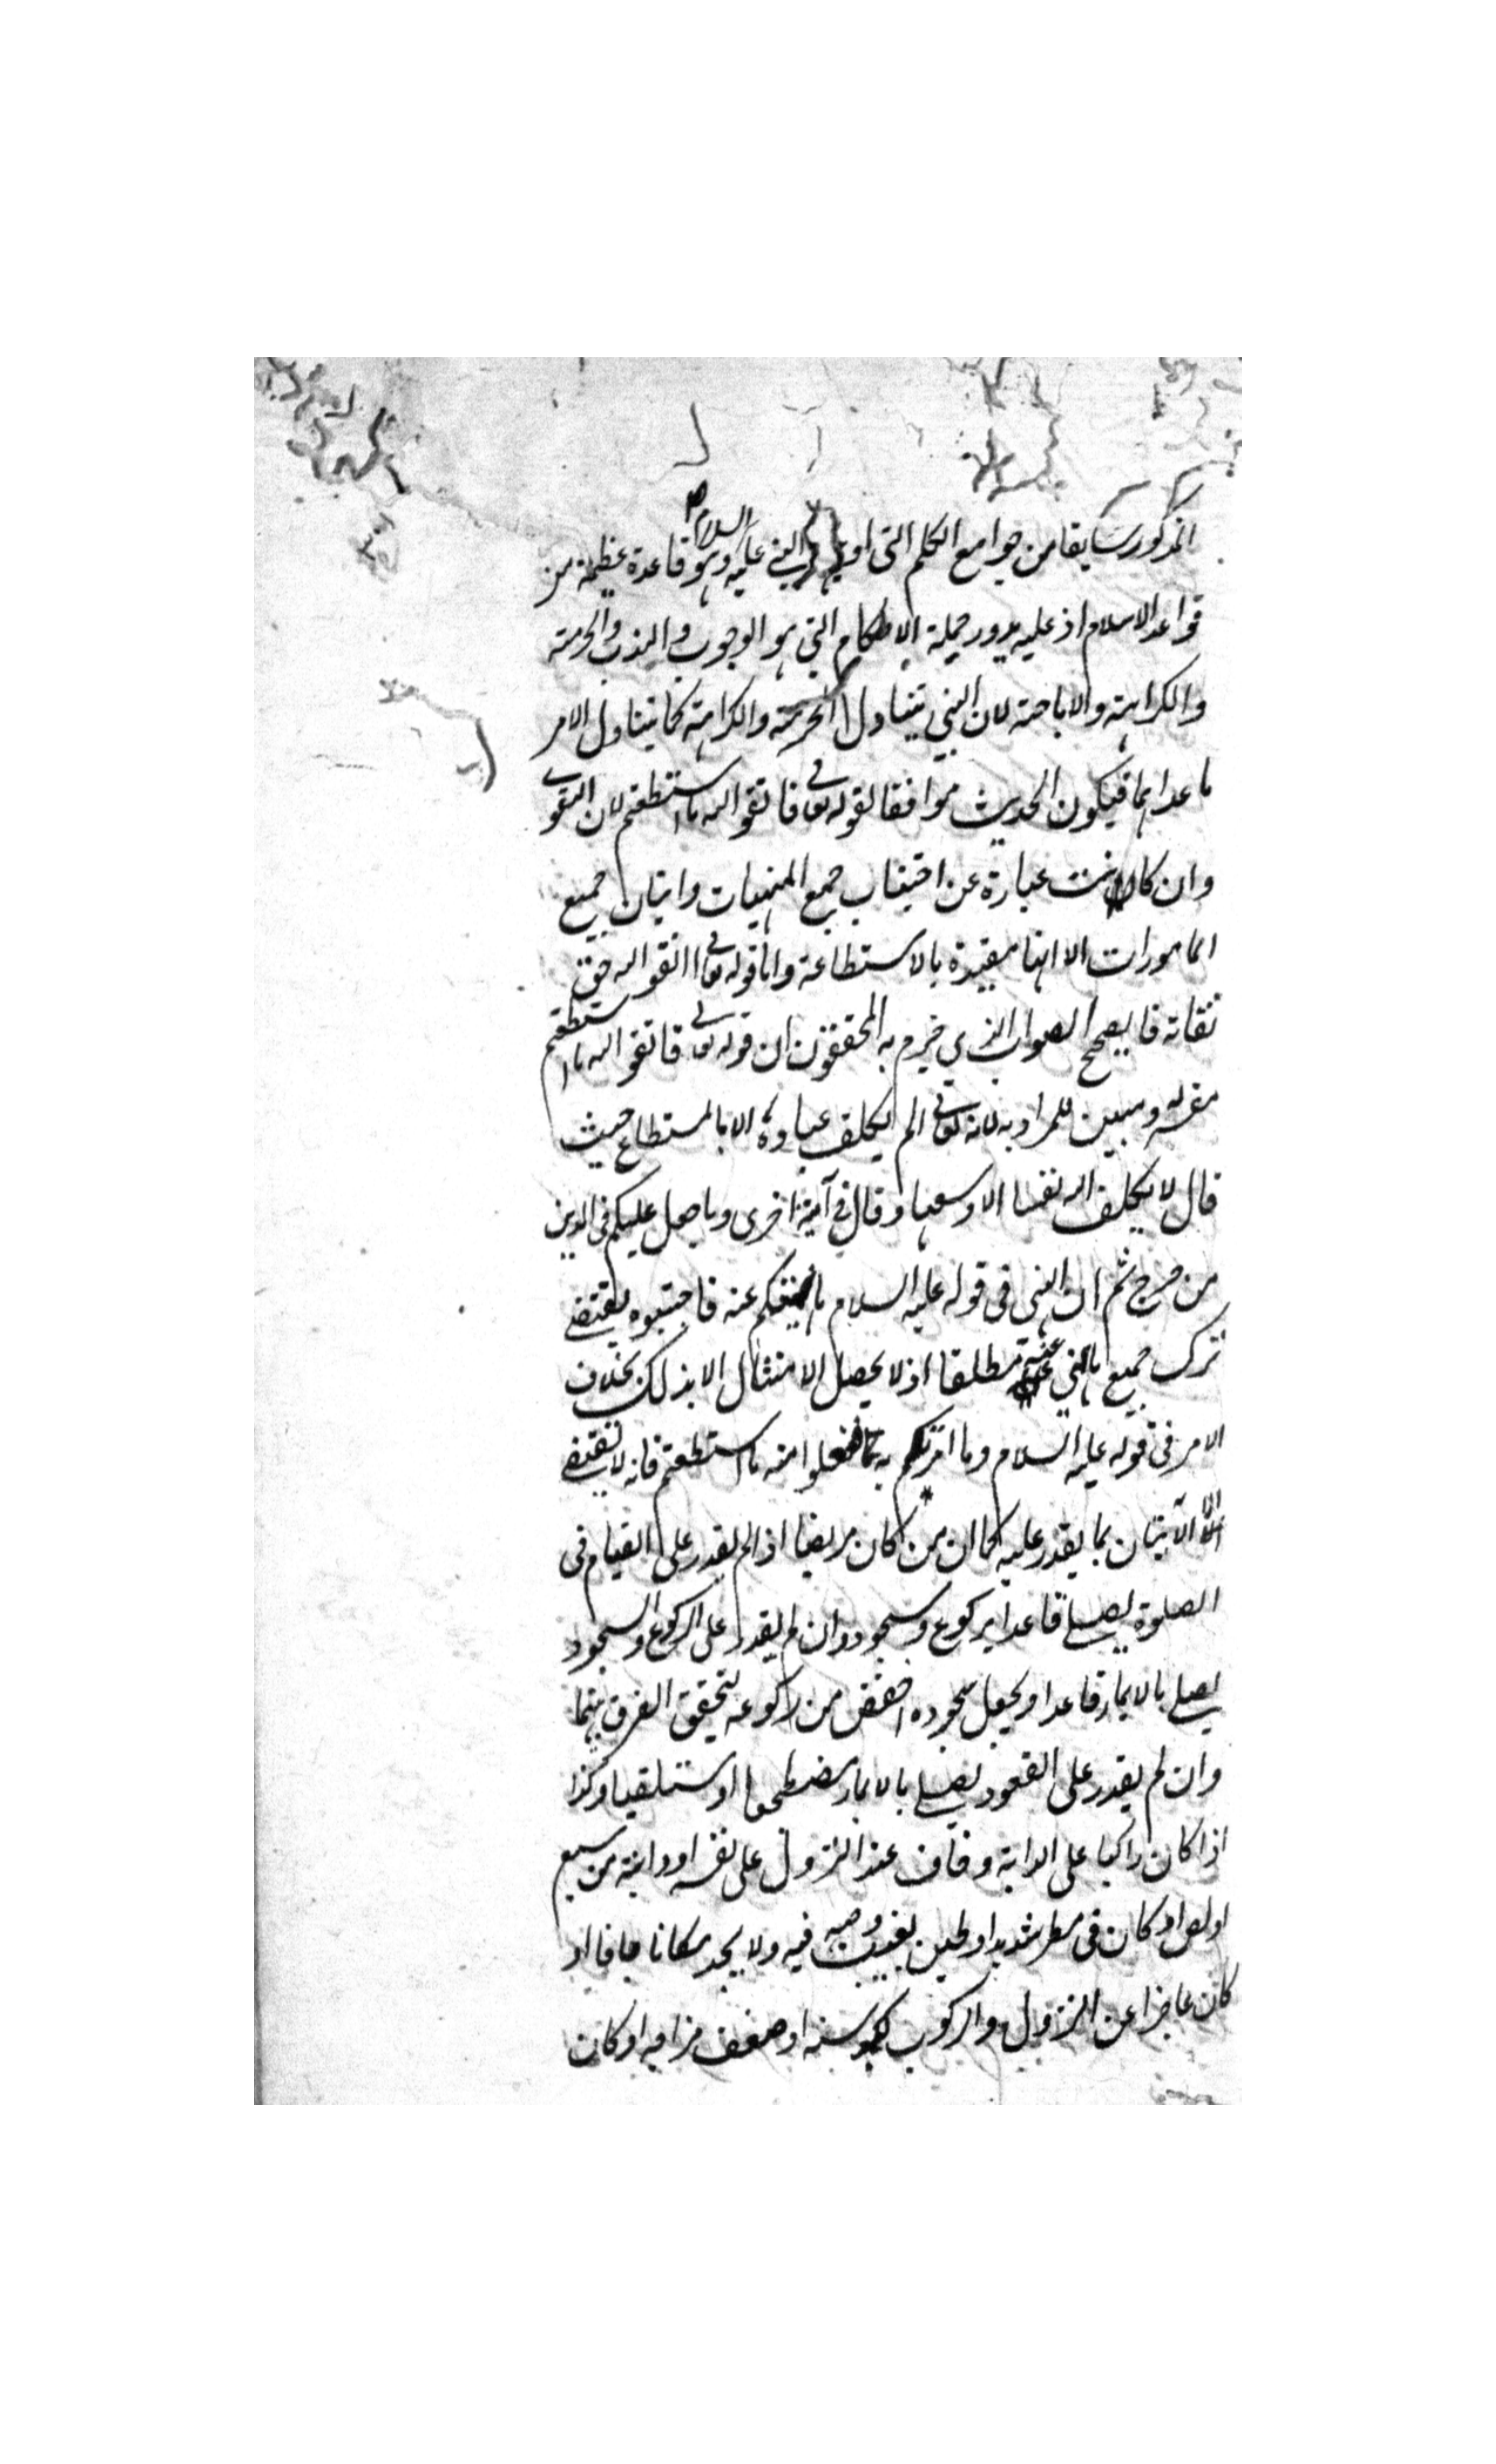 المذكور سابقا من جوامع الكلم التى اوتيها النبى عليه السلام وهو قاعدة عظيمة من
قواعد الاسلام اذ عليه يدور جملة الاحكام التى هو الوجوب والندب والحرمة
والكراهة والاباحة لان النهى يتناول الحرمة والكراهة كما يتناول الامر
ما عداهما فيكون الحديث موافقا لقوله تعالى فاتقوا الله ما استطعتم لان التقوى
وان كانت عبارة عن اجتناب جميع المنهيات واتيان جميع
المامورات الا انها مقيدة بالاستطاعة واما قوله تعالى اتقوا الله حق
تقاته فالصحيح الصواب الذى جزم به المحققون ان قوله تعالى فاتقوا الله ما استطعتم
مفسر له ومبين للمراد به لانه تعالى لم يكلف عباده الا بالمستطاع حيث
قال لا يكلف الله نفسا الا وسعها وقال فى آية اخرى وما جعل عليكم فى الدين
من حرج ثم ان النهى فى قوله عليه السلام ما نهيتكم عنه فاجتنبوه يقتضى
ترك جميع ما نهى عنه مطلقا اذ لا يحصل الامتثال الا بذلك بخلاف
الامر فى قوله عليه السلام وما امرتكم به فافعلوا منه ما استطعتم فانه لا يقتضى
الا الاتيان بما يقدر عليه كما ان من كان مريضا اذا لم يقدر على القيام فى
الصلوة يصلى قاعدا بركوع وسجود وان لم يقدر على الركوع والسجود
يصلى بالايماء قاعدا ويجعل سجوده اخفض من ركوعه لتحقق الفرق بينهما
وان لم يقدر على القعود يصلى بالايماء مضطجعا او مستلقيا وكذا
اذا كان راكبا على الدابة وخاف عند النزول على نفسه او دابته من سبع
او لص او كان فى مطر شديد او طين يغيب وجهه فيه ولا يجد مكانا جافا او
كان عاجزا عن النزول والركوب لكبر سنه او ضعف مزاجه او كان